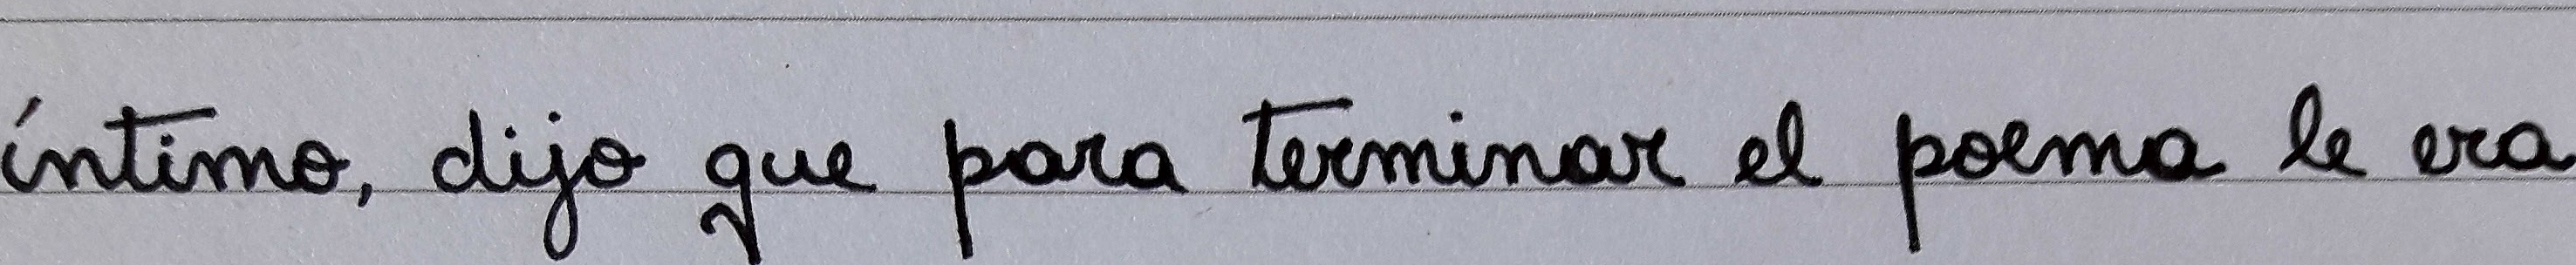 íntimo, dijo que para terminar el poema le era